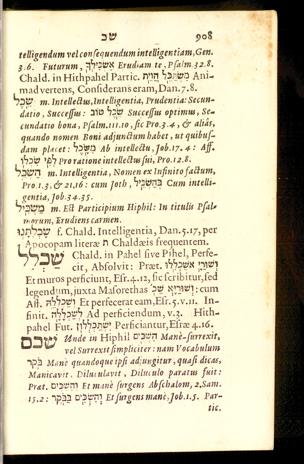 שכ 908
telligendum vel consequendum intelligentiam, Gen.
3.6. Futurum, אַשְׂכִּילְךָ Erudiam te, Psalm 32.8.
Chald. in Hithpahel Partic. מִשְׂתַּכַּל הֲוֵית Ani-
madvertens, Considerans eram, Dan. 7.8.
שֵׂכֶל m. Intellectus, Intelligentia, Prudentia: Secun-
datio, Successus: שֵׂכֶל טוֹב Successus optimus, Se-
cundatio bona, Psalm. 111.10, sic Pro. 3.4, & aliàs,
quando nomen Boni adjunctum habet, ut quibus-
dam placet: Ab intellectu, Job. 17.4: Aff.
לְפִי שִׂכְלוֹ Pro ratione intellectus sui, Pro. 12.8.
הַשְׂכֵּל m. Intelligentia, Nomen ex Infinito factum,
Pro. 1.3, & 21.16: cum Joth, בְּהַשְׂכֵּיל Cum intelli-
gentia, Job 34.35.
מַשְׂכִּיל m. Est Participium Hiphil: In titulis Psal-
morum, Erudiens carmen.
שָׂכְלְתָנוּ f. Chald. Intelligentia, Dan. 5.17, per
Apocopam literæ ת Chaldæis frequentem.
שַׁכְלֵל Chald. in Pahel sive Pihel, Perfe-
cit, Absolvit: Præt. וְשׁוּרַיָּא אֶשְׁכְלִלוּ
Et muros perficiunt, Esr. 4.12, sic scribitur, sed
legendum, juxta Masorethas וְשׁוּרַיָּא שַׁכְ׳: cum
Aff. וְשַׁכְלְלֵהּ Et perfecerat eam, Esr. 5. v. 11. In-
finit. לְשַׁכְלָלָה Ad perficiendum, v. 3. Hith-
pahel Fut. יִשְׁתַּכְלְלוּן Perficiantur, Esræ 4.16.
שכם Unde in Hiphil הִשְׁכִּים Manè surrexit,
vel Surrexit simpliciter: nam Vocabulum
בֹּקֶר Manè quandoque ipsi adjungitur, quasi dicas,
Manicavit, Diluculavit, Diluculo paratus fuit:
Præt. וְהִשְׁכִּים Et manè surgens Abschalom, 2. Sam.
15.2: וְהִשְׁכִּים בַּבֹּקֶר Et surgens manè, Job. 1.5. Par-
tic.